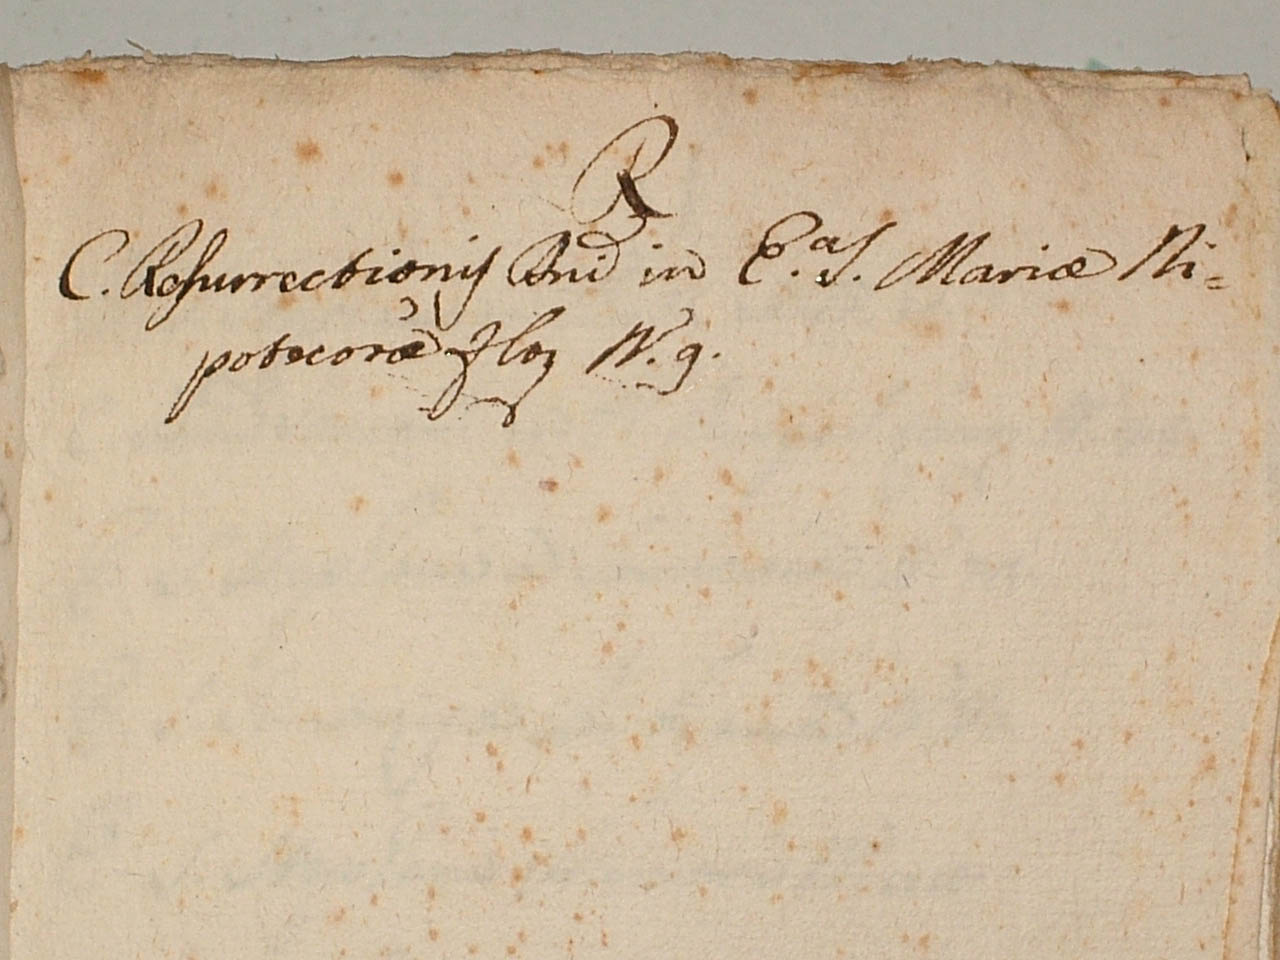 R
C. Resurrectionis Dni in E.a S. Mariæ Ni=
potecoræ
N. 9.